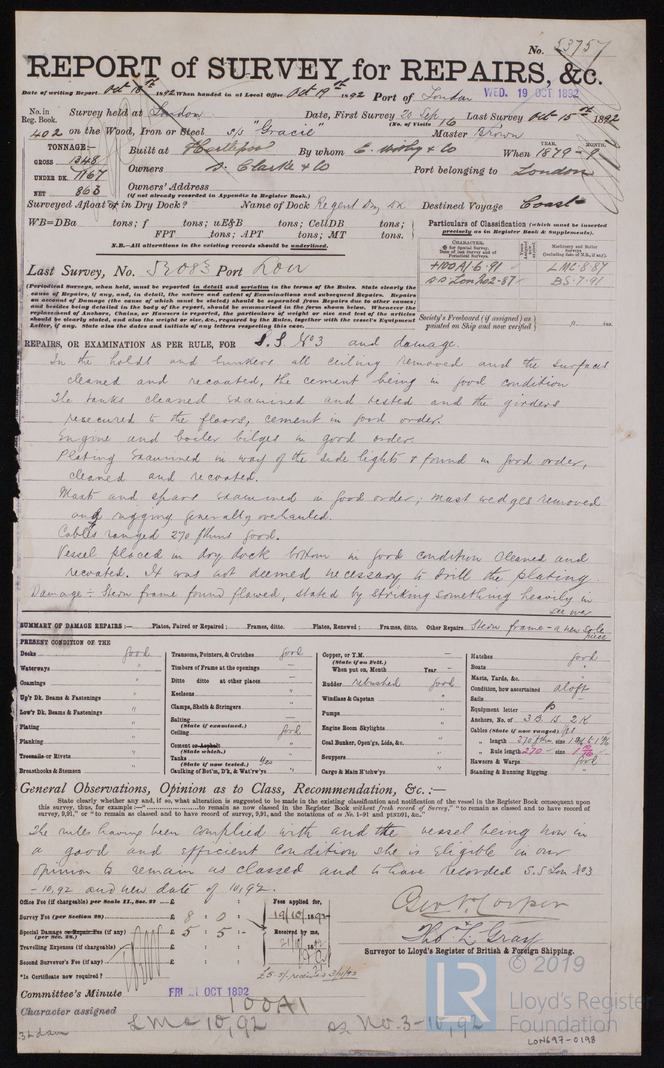 No. 53757
REPORT of SURVEY for REPAIRS, &c.
Date of writing Report Oct 18th 1892 When handed in at Local Office Oct 19th 1892 Port of London WED. 19 OCT 1892
No. in Reg. Book. Survey held at London Date, First Survey 20 Sep Last Survey Oct 15th 1892
(No. of Visits 16)
402 on the Wood, Iron or Steel s/s "Gracie" Master Brown
TONNAGE:— Built at Hartlepool By whom E. Withy & Co When 1879-9
YEAR. MONTH.
GROSS 1348
UNDER DK. 1167 Owners S. Clarke & Co Port belonging to London
NET 863 Owners' Address
(if not already recorded in Appendix to Register Book.)
Surveyed Afloat or in Dry Dock? Name of Dock Regent Dry Dk Destined Voyage Coast
WB=DBa tons; f tons; uE&B tons; CellDB tons;
FPT tons; APT tons; MT tons.
N.B.—All alterations in the existing records should be underlined.
Particulars of Classification (which must be inserted precisely as in Register Book & Supplements).
CHARACTER.
+100A1-6-91 LMC 8-87
SS Lon No2-87 BS-7-91
Society's Freeboard (if assigned) as painted on Ship and now verified
Last Survey, No. 53083 Port Lon
(Periodical Surveys, when held, must be reported in detail and seriatim in the terms of the Rules. State clearly the cause of Repairs, if any, and, in detail, the nature and extent of Examinations and subsequent Repairs. Repairs on account of Damage (the cause of which must be stated) should be separated from Repairs due to other causes;
Letter, if any. State also the dates and initials of any letters respecting this case.
REPAIRS, OR EXAMINATION AS PER RULE, FOR S.S No3 and damage.
In the holds and bunkers all ceiling removed and the surfaces
cleaned and recoated, the cement being in good condition
The tanks cleaned examined and tested and the girders
resecured to the floors, cement in good order.
Engine and boiler bilges in good order.
Plating examined in way of the side lights & found in good order,
cleaned and recoated.
Masts and spars examined in good order; mast wedges removed
and rigging generally overhauled.
Cables ranged 270 fthms good.
Vessel placed in dry dock bottom in good condition cleaned and
recoated. It was not deemed necessary to drill the plating.
Damage:- Stern frame found flawed, stated by striking something heavily in
SUMMARY OF DAMAGE REPAIRS:— Plates, Faired or Repaired; Frames, ditto. Plates, Renewed; Frames, ditto. Other Repairs Stern frame - a new sole piece
PRESENT CONDITION OF THE
Decks good
Waterways "
Coamings "
Up'r Dk. Beams & Fastenings "
Low'r Dk. Beams & Fastenings "
Plating "
Planking
Treenails or Rivets "
Breasthooks & Stemson "
Transoms, Pointers, & Crutches good
Timbers of Frame at the openings —
Ditto ditto at other places —
Keelsons "
Clamps, Shelfs & Stringers "
Salting —
(State if examined.)
Ceiling good
Cement or Asphalt "
(State which.)
Tanks Yes
(State if now tested.)
Caulking of Bot'm, D'k, & Wat'rw'ys "
Copper, or Y.M. —
(State if on Felt.)
When put on, Month — Year —
Rudder rebushed good
Windlass & Capstan "
Pumps "
Engine Room Skylights "
Coal Bunker, Open'gs, Lids, &c. "
Scuppers "
Cargo & Main H'tchw'ys "
Hatches good
Boats "
Masts, Yards, &c. "
Condition, how ascertained aloft
Sails "
Equipment letter p
Anchors, No. of 3 B. 1 S. 2 K
Cables (State if now ranged) Yes
" length 270 fthm size
" Rule length 270 - size
Hawsers & Warps good
Standing & Running Rigging "
General Observations, Opinion as to Class, Recommendation, &c.:—
State clearly whether any and, if so, what alteration is suggested to be made in the existing classification and notification of the vessel in the Register Book consequent upon
this survey, thus, for example:—"to remain as now classed in the Register Book without fresh record of Survey," "to remain as classed and to have record of
survey, 9,91," or "to remain as classed and to have record of survey, 9,91, and the notations of ss No. 1-91 and ptND91, &c."
The rules having been complied with and the vessel being now in
a good and efficient condition she is eligible in our
opinion to remain as classed and to have recorded S.S Lon No3
-10,92 and new date of 10,92.
Office Fee (if chargeable) per Scale II., Sec. 27 £
Survey Fee (per Section 28) £ 8 : 0 :
Special Damage or Repair Fee (if any) £ 5 : 5 :
(per Sec. 28.)
Travelling Expenses (if chargeable) £
Second Surveyor's Fee (if any) £
*Is Certificate now required?
Fees applied for,
19/10/1892
Received by me,
Geo. N. Cooper
Thos. L. Gray
Surveyor to Lloyd's Register of British & Foreign Shipping.
Committee's Minute FRI. 21 OCT 1892
Character assigned 100A1
LMC 10,92 ss No. 3-10,92
© 2019
LR
Lloyd's Register
Foundation
LON697-0198